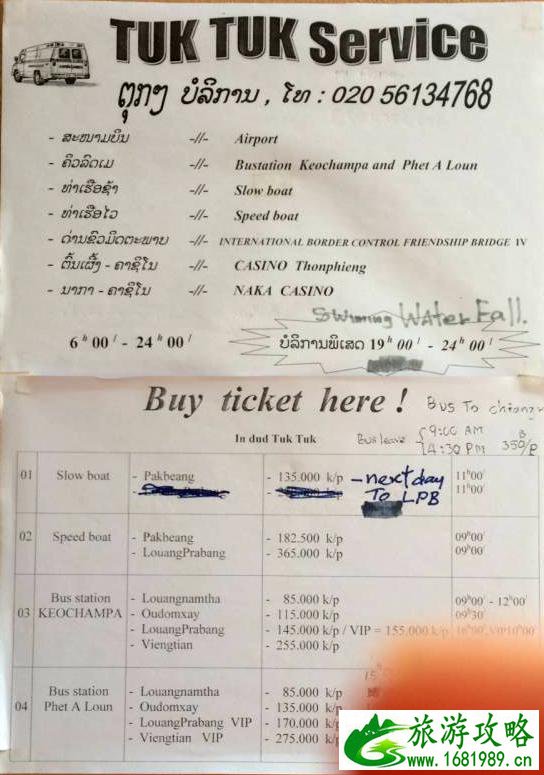 TUK TUK Service
ຕຸກໆ ບໍລິການ , ໂທ : 020 56134768
- ສະໜາມບິນ -//- Airport
- ຄິວລົດເມ -//- Bustation Keochampa and Phet A Loun
- ທ່າເຮືອຊ້າ -//- Slow boat
- ທ່າເຮືອໄວ -//- Speed boat
- ດ່ານຂົວມິດຕະພາບ -//- INTERNATIONAL BORDER CONTROL FRIENDSHIP BRIDGE IV
- ຕົ້ນເຜິ້ງ - ຄາຊິໂນ -//- CASINO Thonphieng
- ນາກາ - ຄາຊິໂນ -//- NAKA CASINO
Swimming WATER Fall.
6 h 00 / - 24 h 00 /
ບໍລິການພິເສດ 19 h 00 / - 24 h 00 /
Buy ticket here !
BUS TO
In dud Tuk Tuk
Bus leave { 9:00 AM
14:30 PM 350/P
01 Slow boat - Pakbeang - 135.000 k/p - next day 11h00'
TO LPB 11h00'
02 Speed boat - Pakbeang - 182.500 k/p 09h00'
- LouangPrabang - 365.000 k/p 09h00'
03 Bus station KEOCHAMPA - Louangnamtha - 85.000 k/p 09h00' - 12h00'
- Oudomxay - 115.000 k/p 09h30'
- LouangPrabang - 145.000 k/p / VIP = 155.000 k/p
- Viengtian - 255.000 k/p
04 Bus station Phet A Loun - Louangnamtha - 85.000 k/p
- Oudomxay - 135.000
- LouangPrabang VIP - 170.000
- Viengtian VIP - 275.000
旅游攻略
www.1681989.cn